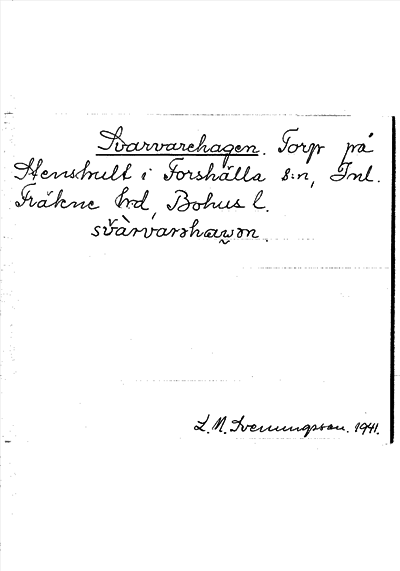 Svarvarehagen. Torp på
Stenshult i Forshälla s:n, Inl.
Fräkne hrd, Bohus l.
svàrvarshaw̰ən.
L. N. Svenungsson. 1941.